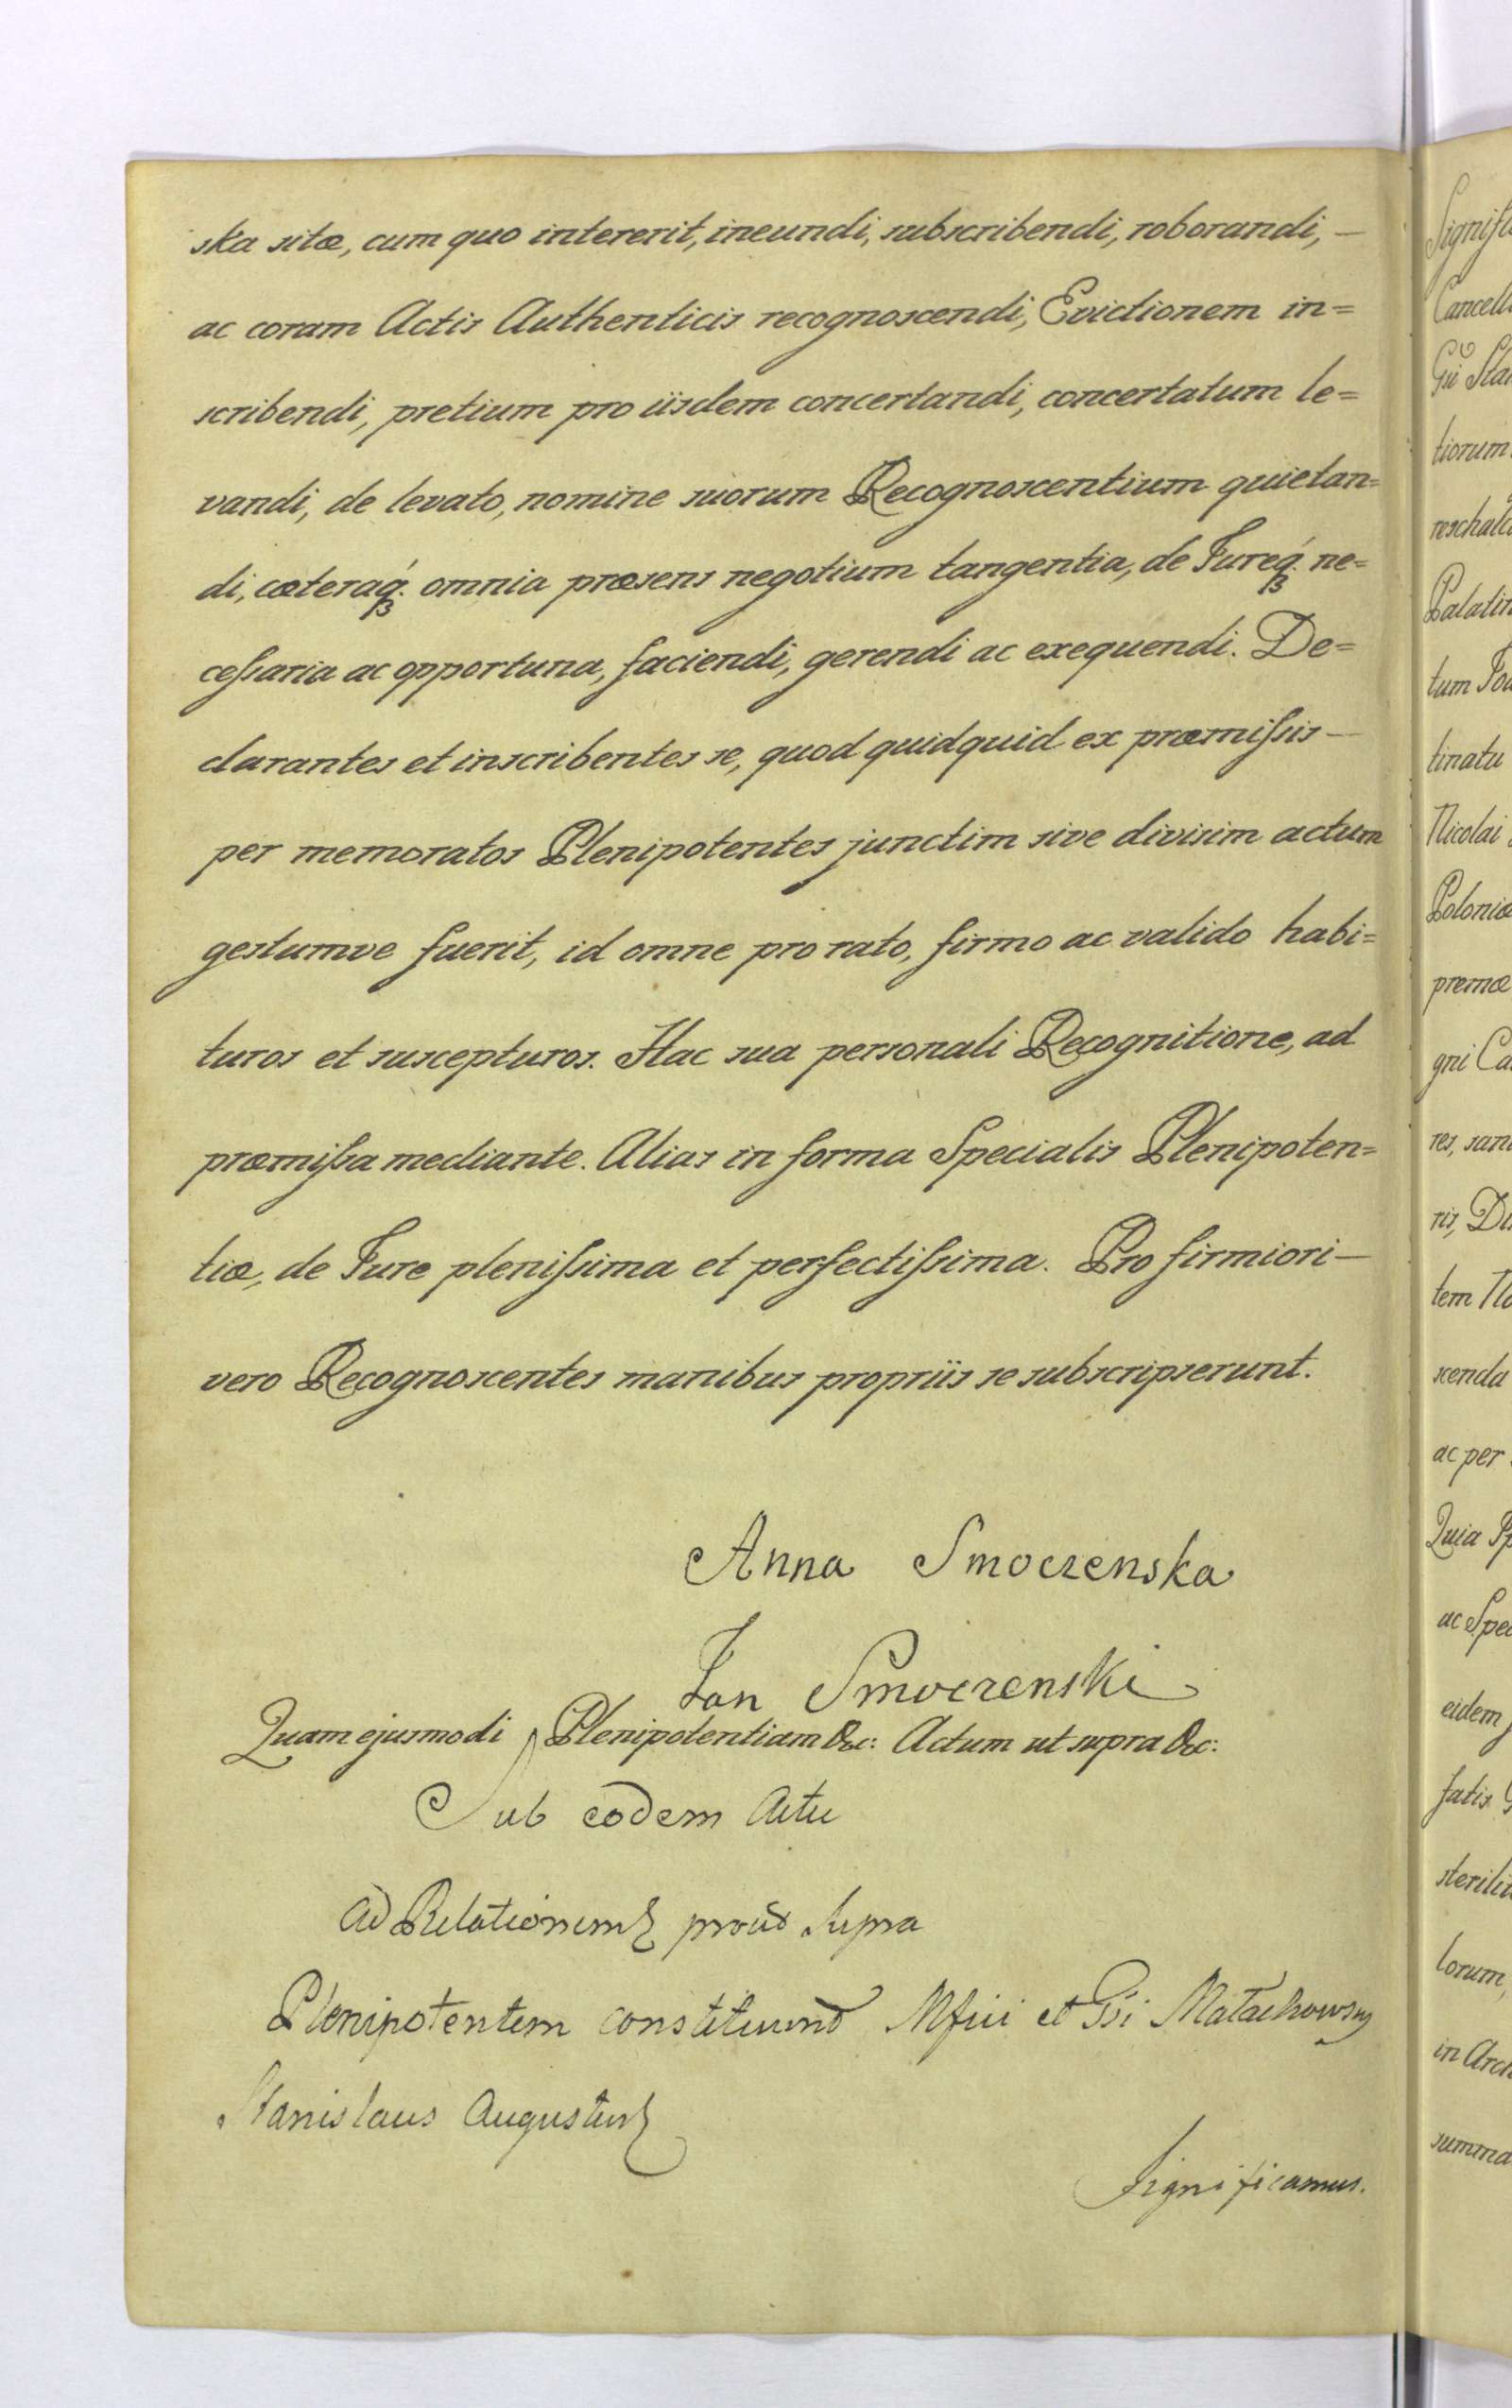 ska sitæ, cum quo intererit, ineundi, subscribendi, roborandi, —
ac coram Actis Authenticis recognoscendi, Evictionem in=
scribendi, pretium pro iisdem concertandi, concertatum le=
vandi, de levato, nomine suorum Recognoscentium quietan=
di, cæteraq́ꝫ omnia præsens negotium tangentia, de Jureq́ꝫ ne=
ceſsaria ac opportuna, faciendi, gerendi ac exequendi. De=
clarantes et inscribentes se, quod quidquid ex præmiſsis —
per memoratos Plenipotentes junctim sive divisim actum
gestumve fuerit, id omne pro rato, firmo ac valido habi=
turos et suscepturos. Hac sua personali Recognitione, ad
præmiſsa mediante. Alias in forma Specialis Plenipoten=
tiæ, de Jure pleniſsima et perfectiſsima. Pro firmiori —
vero Recognoscentes manibus propriis se subscripserunt.
Anna Smoczenska
Jan Smoczenski
Quam ejusmodi Plenipotentiam &c: Actum ut supra &c:
Sub eodem Actu
Ad Relationem prout supra
Plenipotentem constituund Mfici et Gsi Małachowscy
Stanislaus Augustus
Significamus.
Cancell
tiorum
Palatin
tinatu
Nicolai
Poloniæ
premæ
gni Ca
scenda
ac per
Quia
ac Spec
eidem
fatis
lorum,
in Arch
summa